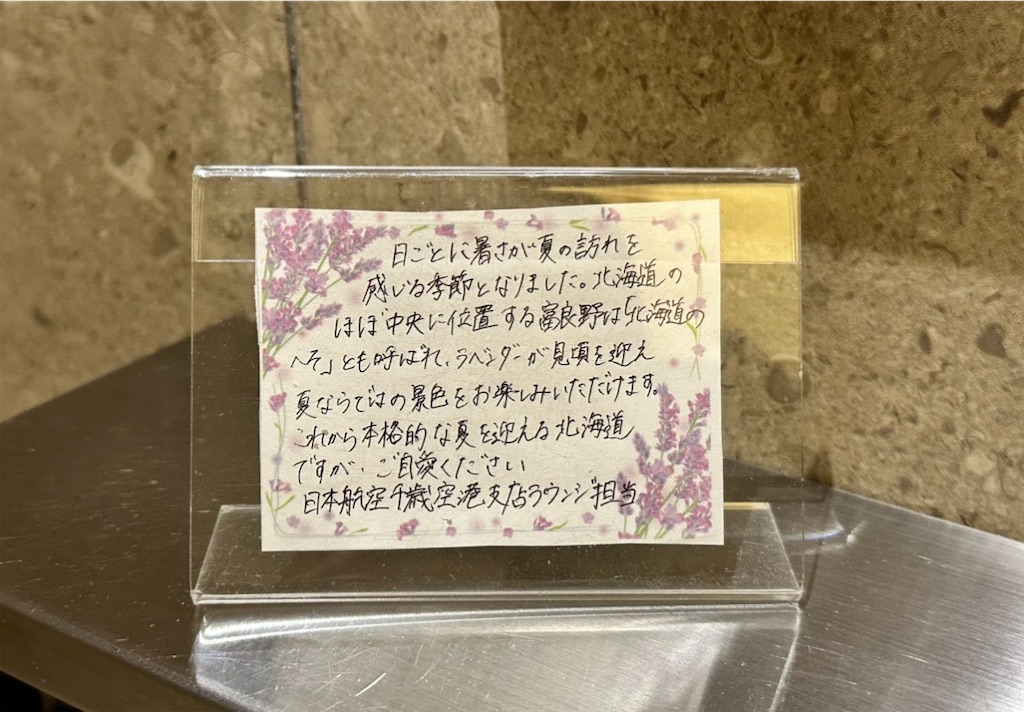 日ごとに暑さが夏の訪れを
感じる季節となりました。北海道の
ほぼ中央に位置する富良野は「北海道の
へそ」とも呼ばれ、ラベンダーが見頃を迎え
夏ならではの景色をお楽しみいただけます。
これから本格的な夏を迎える北海道
ですが、ご自愛ください
日本航空千歳空港支店ラウンジ担当